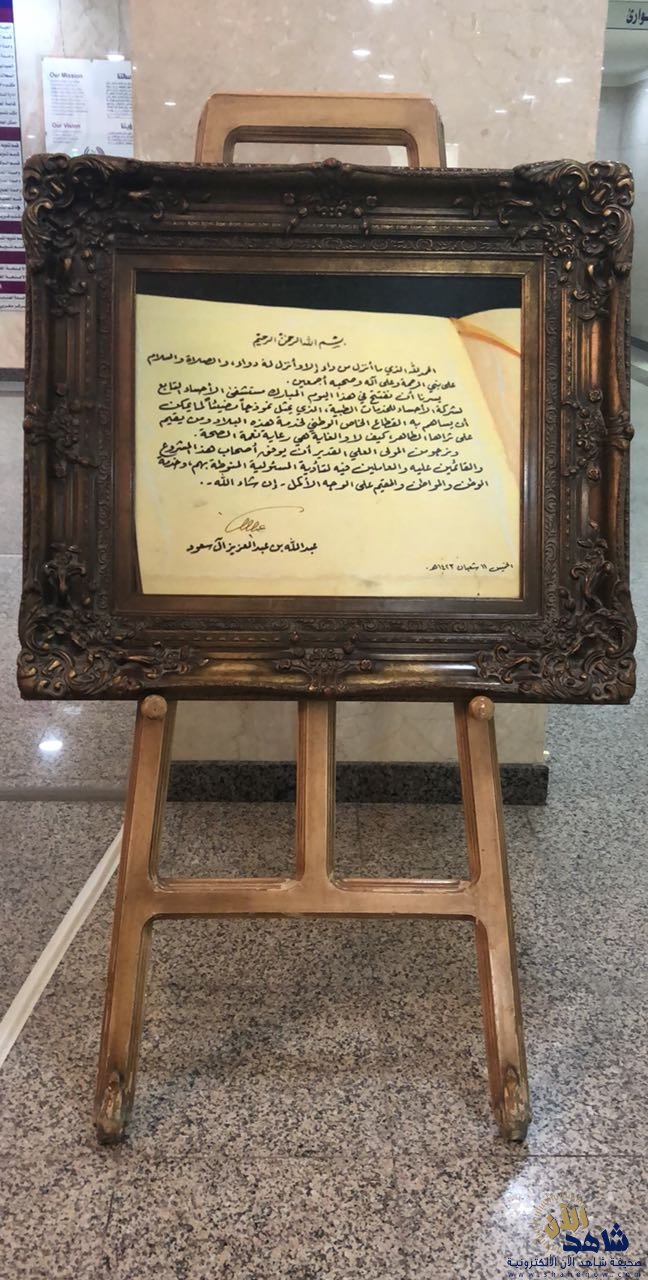 Our Mission
رسالتنا
Our Vision
رؤيتنا
بسم الله الرحمن الرحيم
الحمد لله الذي ما أنزل من داء إلا وأنزل له دواء، والصلاة والسلام
على نبي الرحمة وعلى آله وصحبه أجمعين.
يسرنا أن نفتتح في هذا اليوم المبارك مستشفى الأحساء التابع
لشركة الأحساء للخدمات الطبية، الذي يمثل نموذجاً مضيئاً لما يمكن
أن يساهم به القطاع الخاص الوطني لخدمة هذه البلاد ومن يقيم
على ثراها الطاهر، كيف لا والغاية هي رعاية نعمة الصحة.
ونرجو من المولى العلي القدير أن يوفق أصحاب هذا المشروع
والقائمين عليه والعاملين فيه لتأدية المسئولية المنوطة بهم، وخدمة
الوطن والمواطن والمقيم على الوجه الأكمل - إن شاء الله -.
عبدالله بن عبدالعزيز آل سعود
الخميس ١١ شعبان ١٤٢٣هـ.
شاهد الآن
صحيفة شاهد الآن الالكترونية
www.shahdnow.com